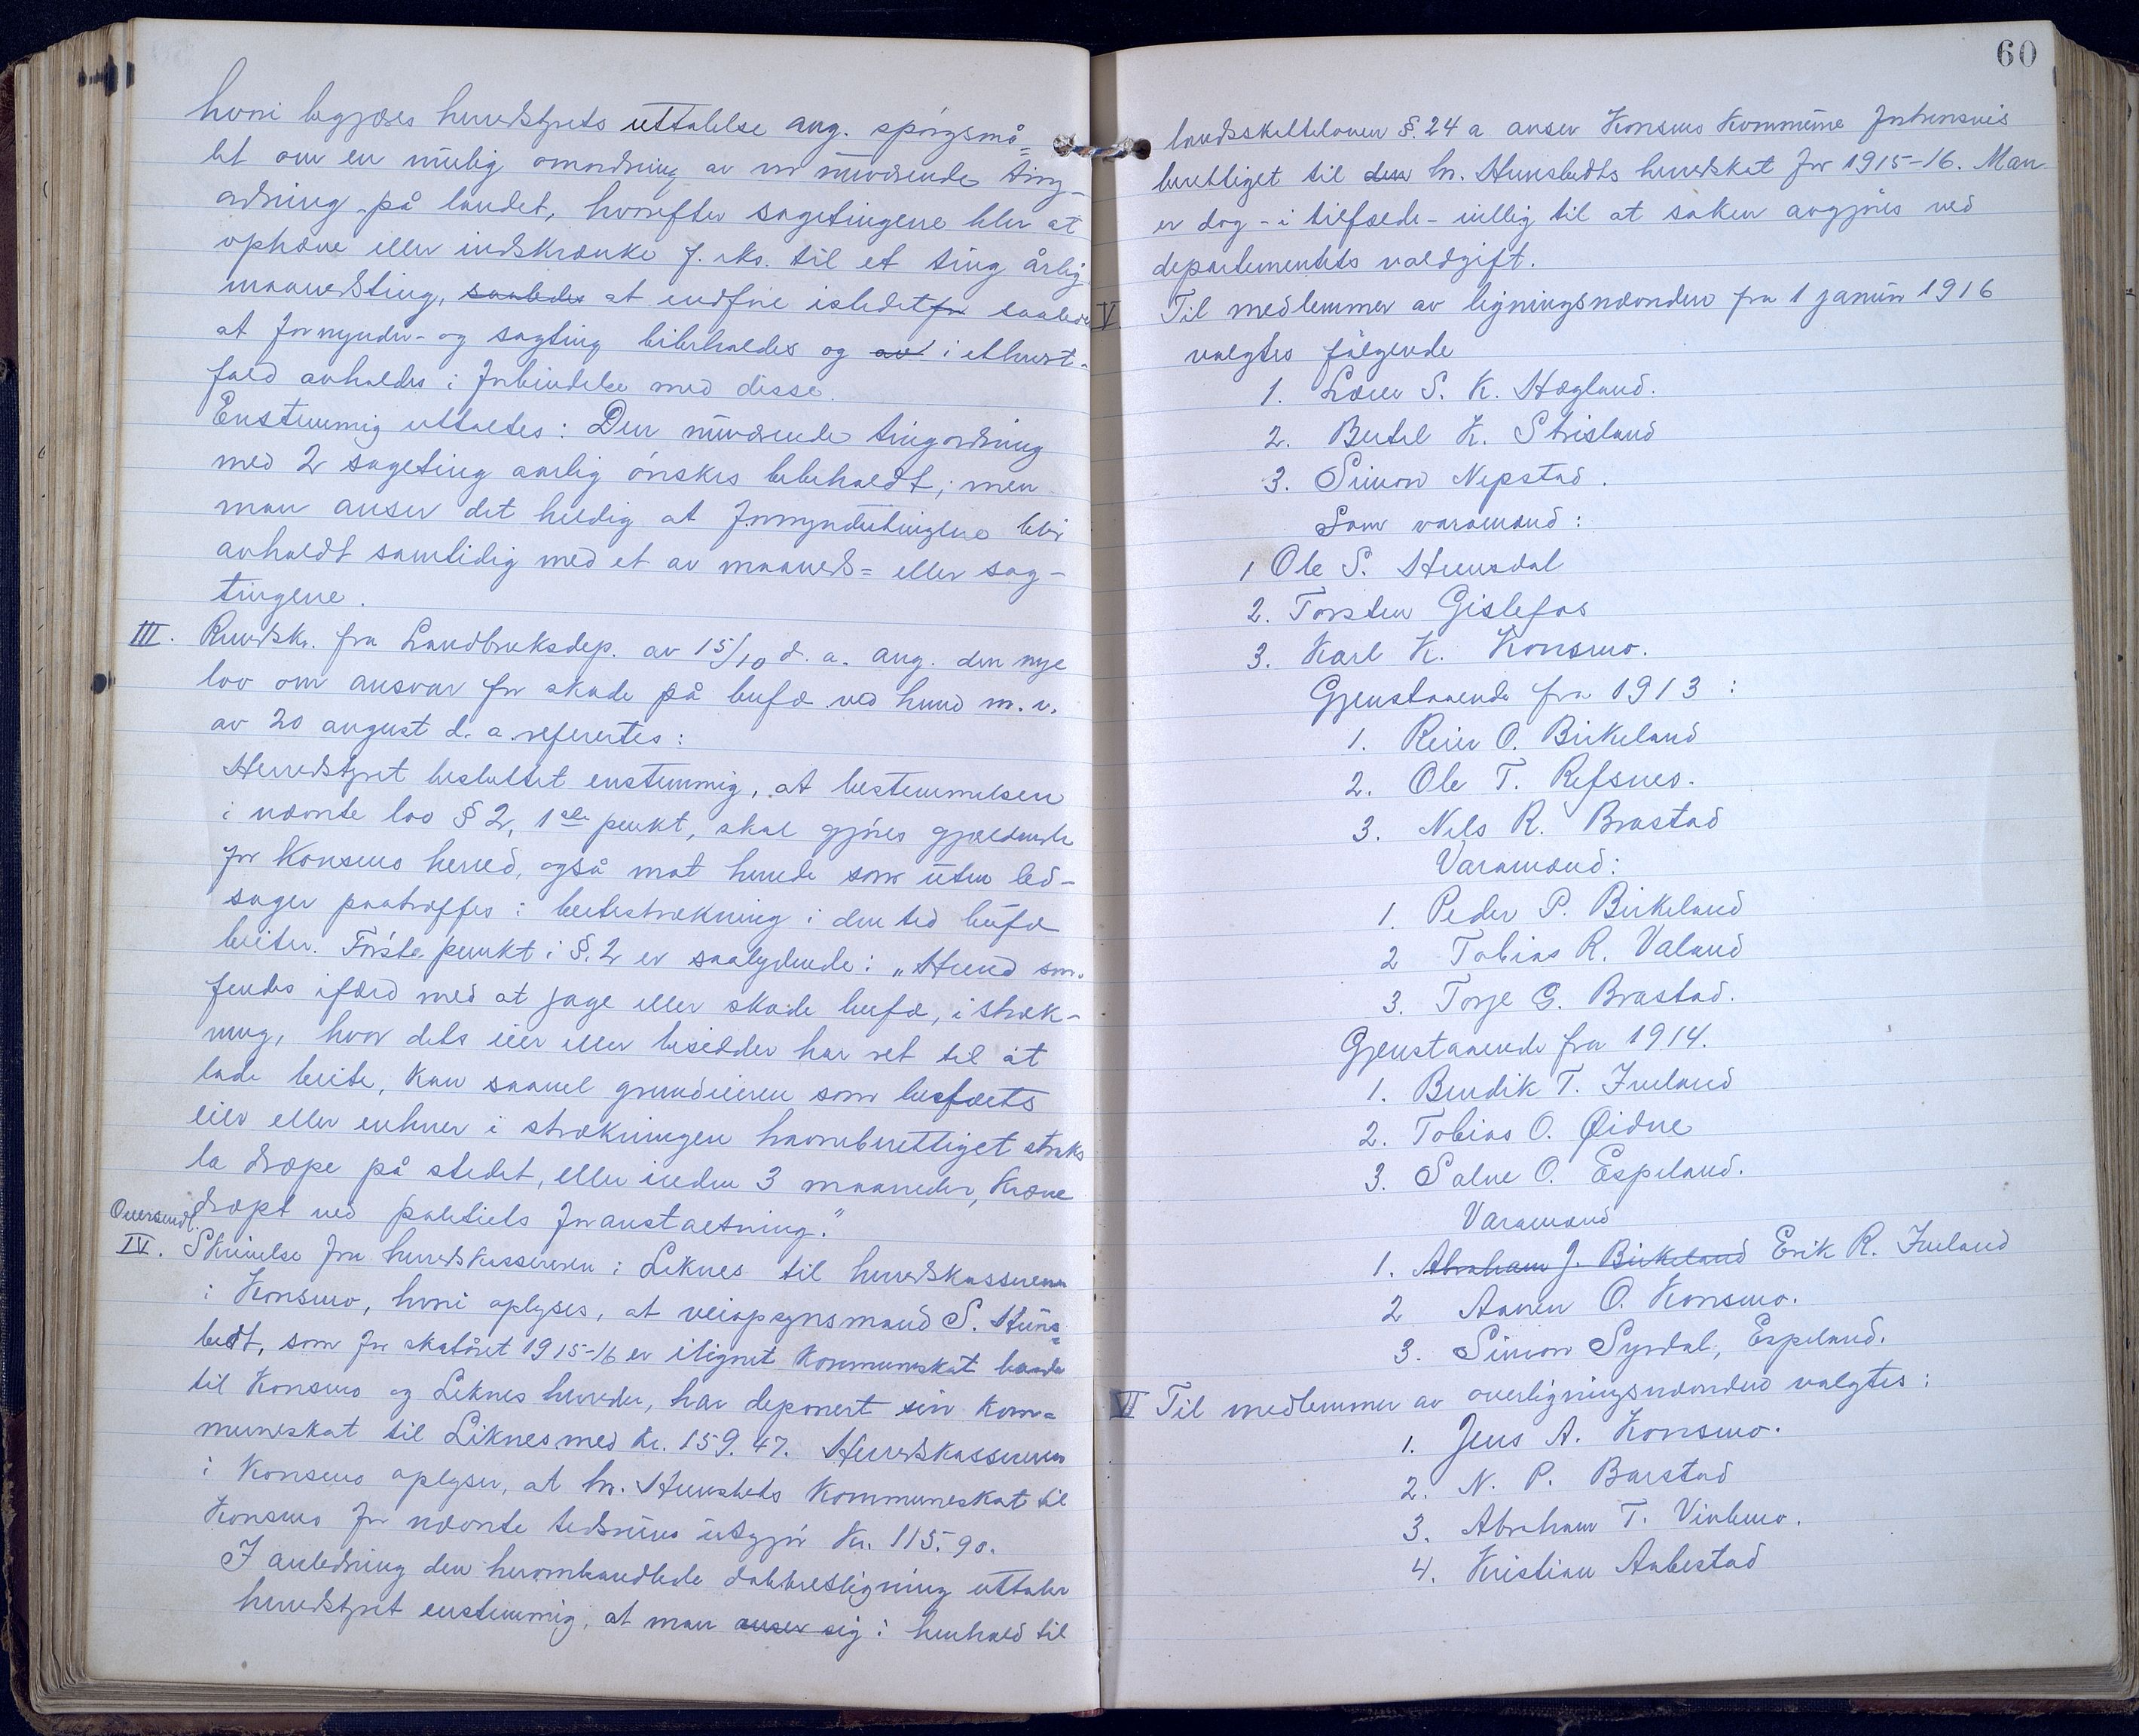 hvori begjæres herredstyrets uttalelse ang. spørgsmå=
let om en mulig omordning av vor nuværende ting-
ordning på landet, hvorefter sagetingene blir at
ophæve eller indskrænke f. eks. til et ting årlig
maanedsting, saaledes at indføre istedetfor saaledes
at formynder- og sagting bibeholdes og av i ethvert-
fald avholdes i forbindelse med disse.
Enstemmig uttaltes: Den nuværende tingordning
med 2 sageting aarlig ønskes bibeholdt; men
man anser det heldig at formyndertingene blir
avholdt samtidig med et av maaneds= eller sag-
tingene.
III. Rundsk. fra Landbruksdep. av 15/10 d. a. ang. den nye
lov om ansvar for skade på bufæ ved hund m. v.
av 20 august d. a. referertes:
Herredstyret besluttet enstemmig, at bestemmelsen
i nævnte lov § 2, 1ste punkt, skal gjøres gjældende
for Konsmo herred, også mot hunde som uten led-
sager paatræffes i beitestrækning i den tid bufæ
beiter. Første punkt i §. 2 er saalydende: „Hund som
findes ifærd med at jage eller skade bufæ, i stræk-
ning, hvor dets eier eller besidder har ret til at
lade beite, kan saavel grundeieren som bufæets
eier eller enhver i strækningen havneberettiget straks
la dræpe på stedet, eller inden 3 maaneder, kræve
dræpt ved politiets foranstaltning."
Oversendt.
IV. Skrivelse fra herredskassereren i Liknes til herredskassereren
i Konsmo, hvori oplyses, at veiopsynsmand S. Huns=
bedt, som for skatåret 1915-16 er ilignet kommuneskat baade
til Konsmo og Liknes herreder, har deponert sin kom=
muneskat til Liknes med kr. 159.47. Herredskassereren
i Konsmo oplyser, at hr. Hunsbedts kommuneskat til
Konsmo for nævnte tidsrum utgjør Kr. 115.90.
I anledning den heromhandlede dobbeltligning uttaler
herredstyret enstemmig, at man anser sig i henhold til
60
landsskatteloven §. 24 a anser Konsmo Kommune fortrinsvis
berettiget til den hr. Hunsbedts herredskat for 1915-16. Man
er dog - i tilfælde - villig til at saken avgjøres ved
departementets voldgift.
V. Til medlemmer av ligningsnævnden fra 1 januar 1916
valgtes følgende
1. Lærer S. K. Høgland.
2. Bertel K. Strisland
3. Simon Nepstad.
Som varamænd:
1 Ole S. Hunsdal
2. Torsten Gislefos
3. Karl K. Konsmo.
Gjenstaaende fra 1913:
1. Reier O. Birkeland
2. Ole T. Refsnes.
3. Nils R. Brastad
Varamænd:
1. Peder P. Birkeland
2 Tobias R. Valand
3. Torje G. Brastad.
Gjenstaaende fra 1914.
1. Bendik T. Iveland
2. Tobias O. Øidne
3. Salve O. Espeland.
Varamænd
1. Abraham J. Birkeland Erik R. Iveland
2 Aanen O. Konsmo.
3. Simon Syrdal, Espeland.
VI Til medlemmer av overligningsnævnden valgtes:
1. Jens A. Konsmo.
2. N. P. Barstad
3. Abraham T. Vivlemo.
4. Kristian Aabestad